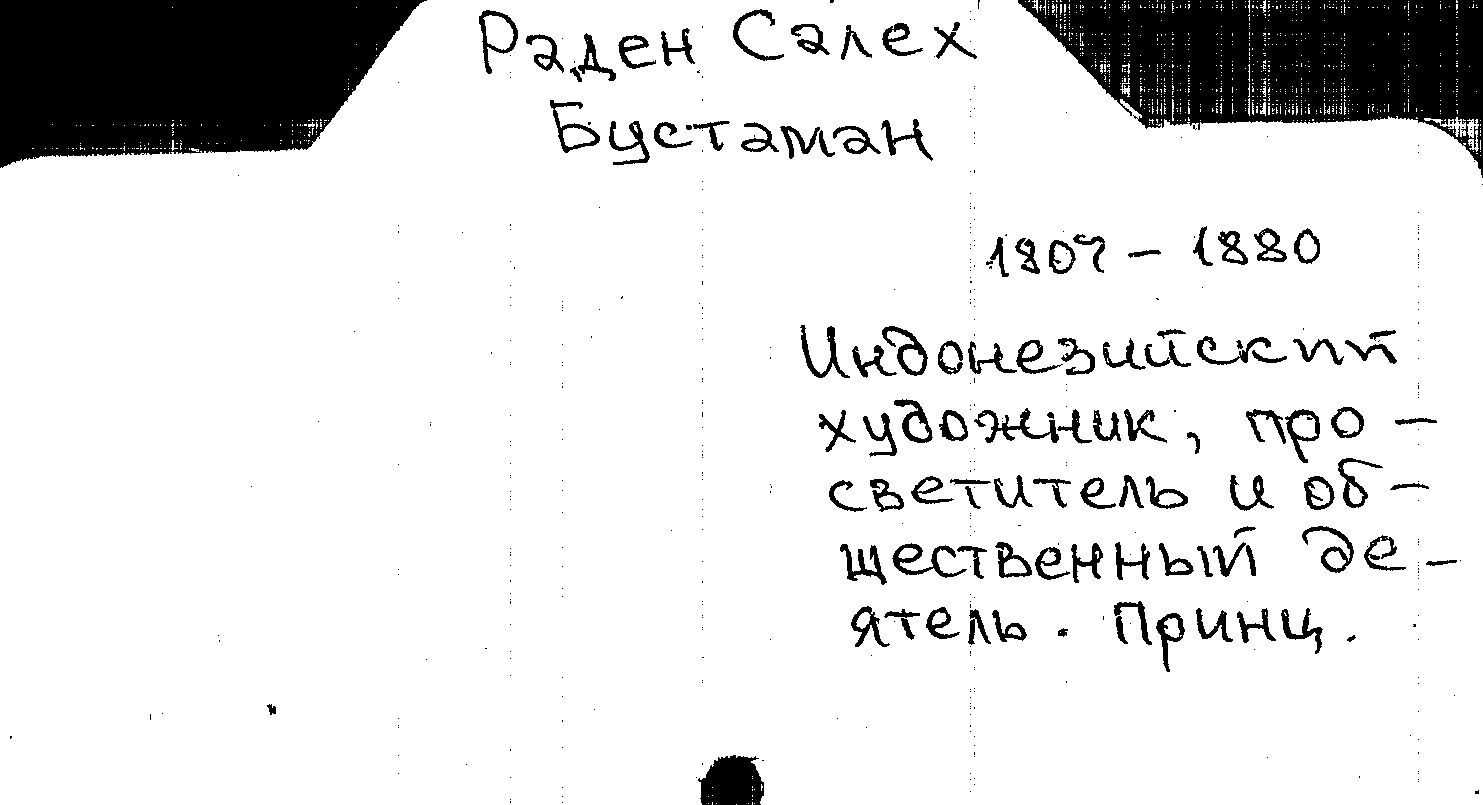 Раден Салех
Бустаман
1807 – 1880
Индонезийский
художник, про-
светитель и об-
щественный де-
ятель. Принц.